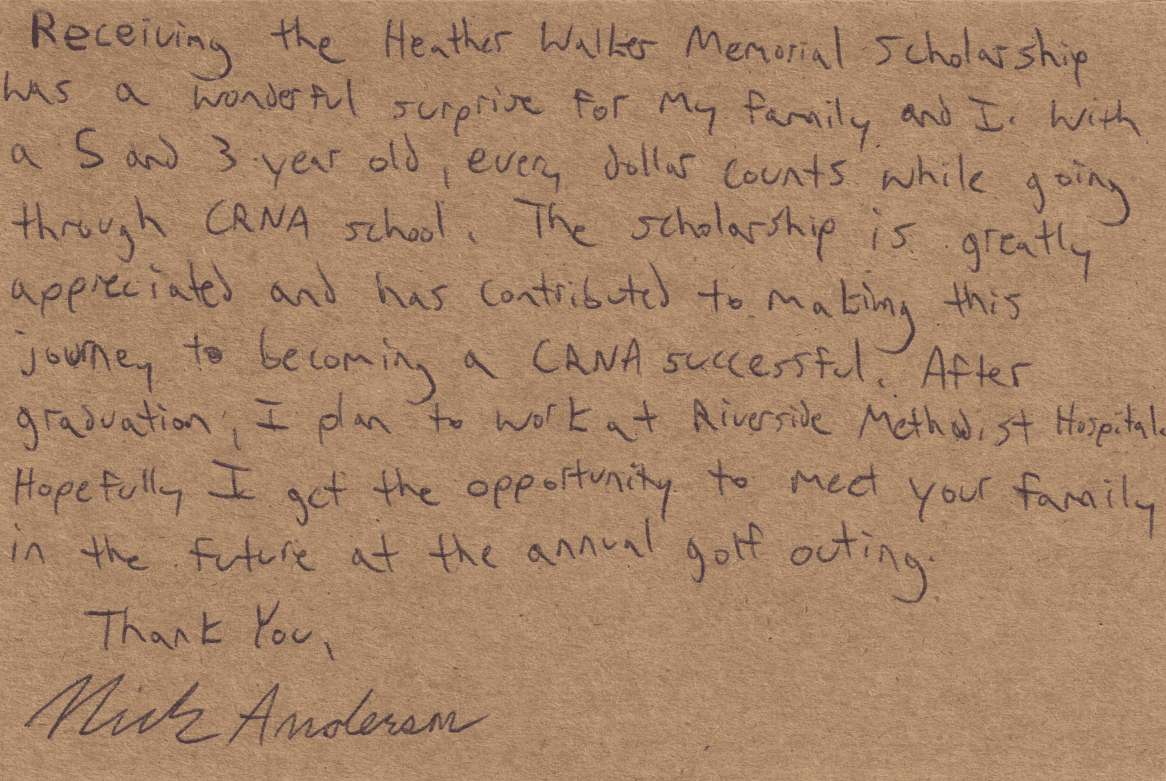 Receiving the Heather Walker Memorial Scholarship
was a wonderful surprise for my family and I. With
a 5 and 3 year old, every dollar counts while going
through CRNA school. The scholarship is greatly
appreciated and has contributed to making this
journey to becoming a CRNA successful. After
graduation, I plan to work at Riverside Methodist Hospital.
Hopefully I get the opportunity to meet your family
in the future at the annual golf outing.
Thank You,
Nick Anderson